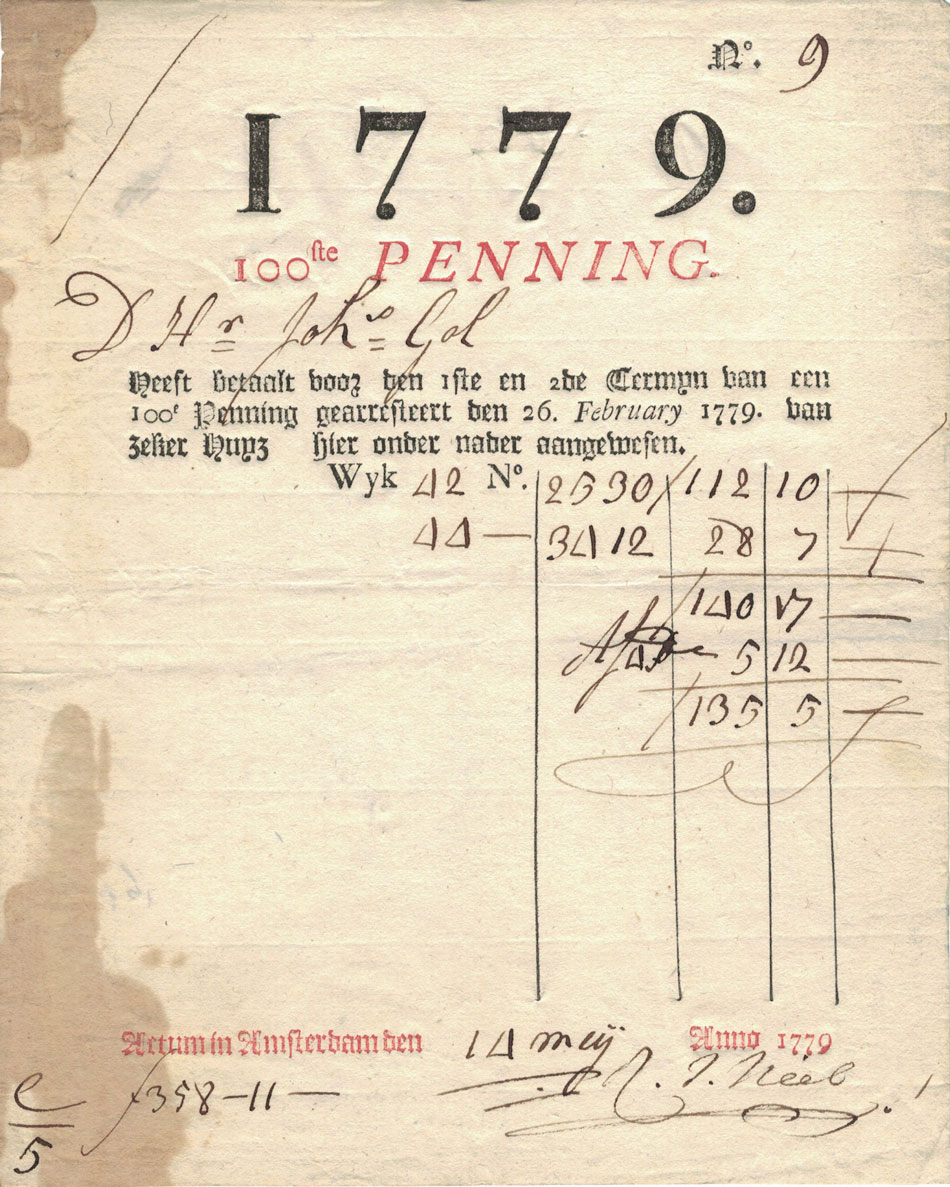 No. 9
1779.
100ste PENNING.
D Hr Johs Gol
Heeft betaalt vooz den 1ste en 2de Termyn van een
100e Penning gearresteert den 26. February 1779. van
zeker Huyz hier onder nader aangewesen.
Wyk 42 No. 2530 112 10 —
44 — 3412 28 7 —
140 17 —
5 12 —
135 5 —
Actum in Amsterdam den 14 meÿ Anno 1779
f358-11-
e
5